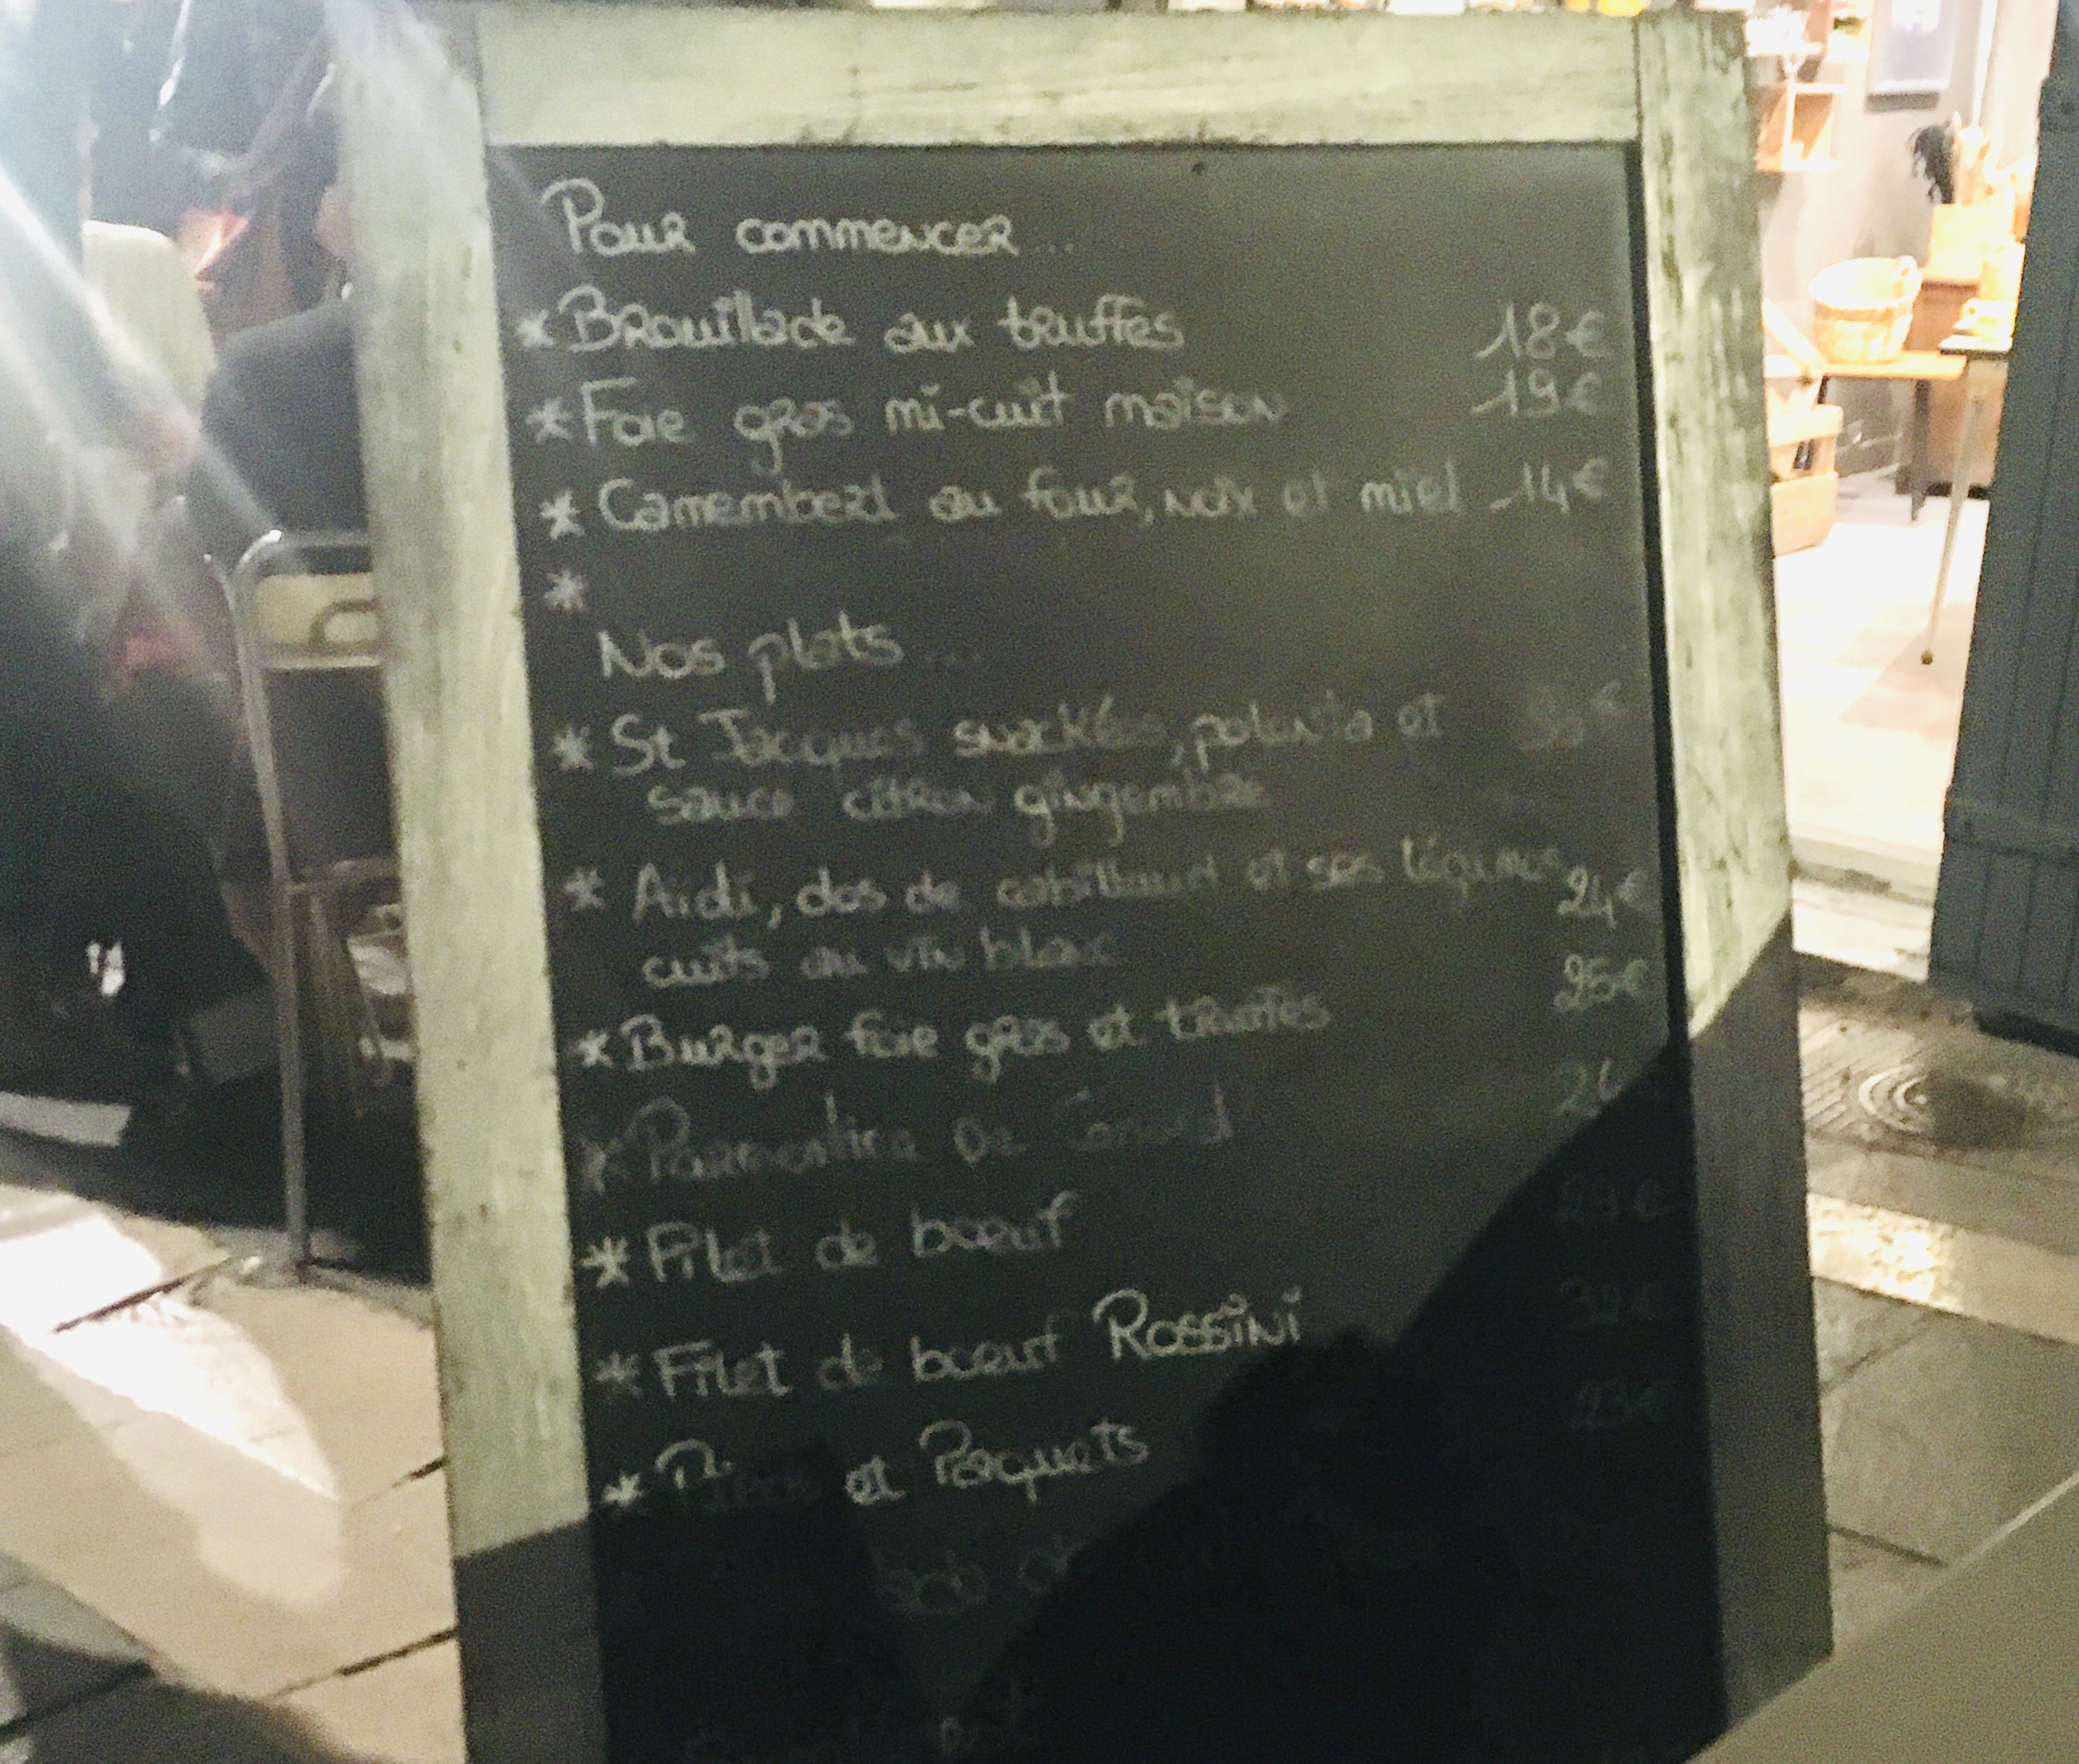 Pour commencer...
* Brouillade aux truffes 18€
* Foie gras mi-cuit maison 19€
* Camembert au four, noix et miel 14€
*
Nos plats...
* St Jacques snackées, polenta et
sauce citron gingembre
* Aïdi, dos de cabillaud et ses légumes 24€
cuits au vin blanc
* Burger foie gras et truffes 25€
* Parmentier de Canard
* Filet de boeuf 29€
* Filet de boeuf Rossini 32€
* et Parquets 23€